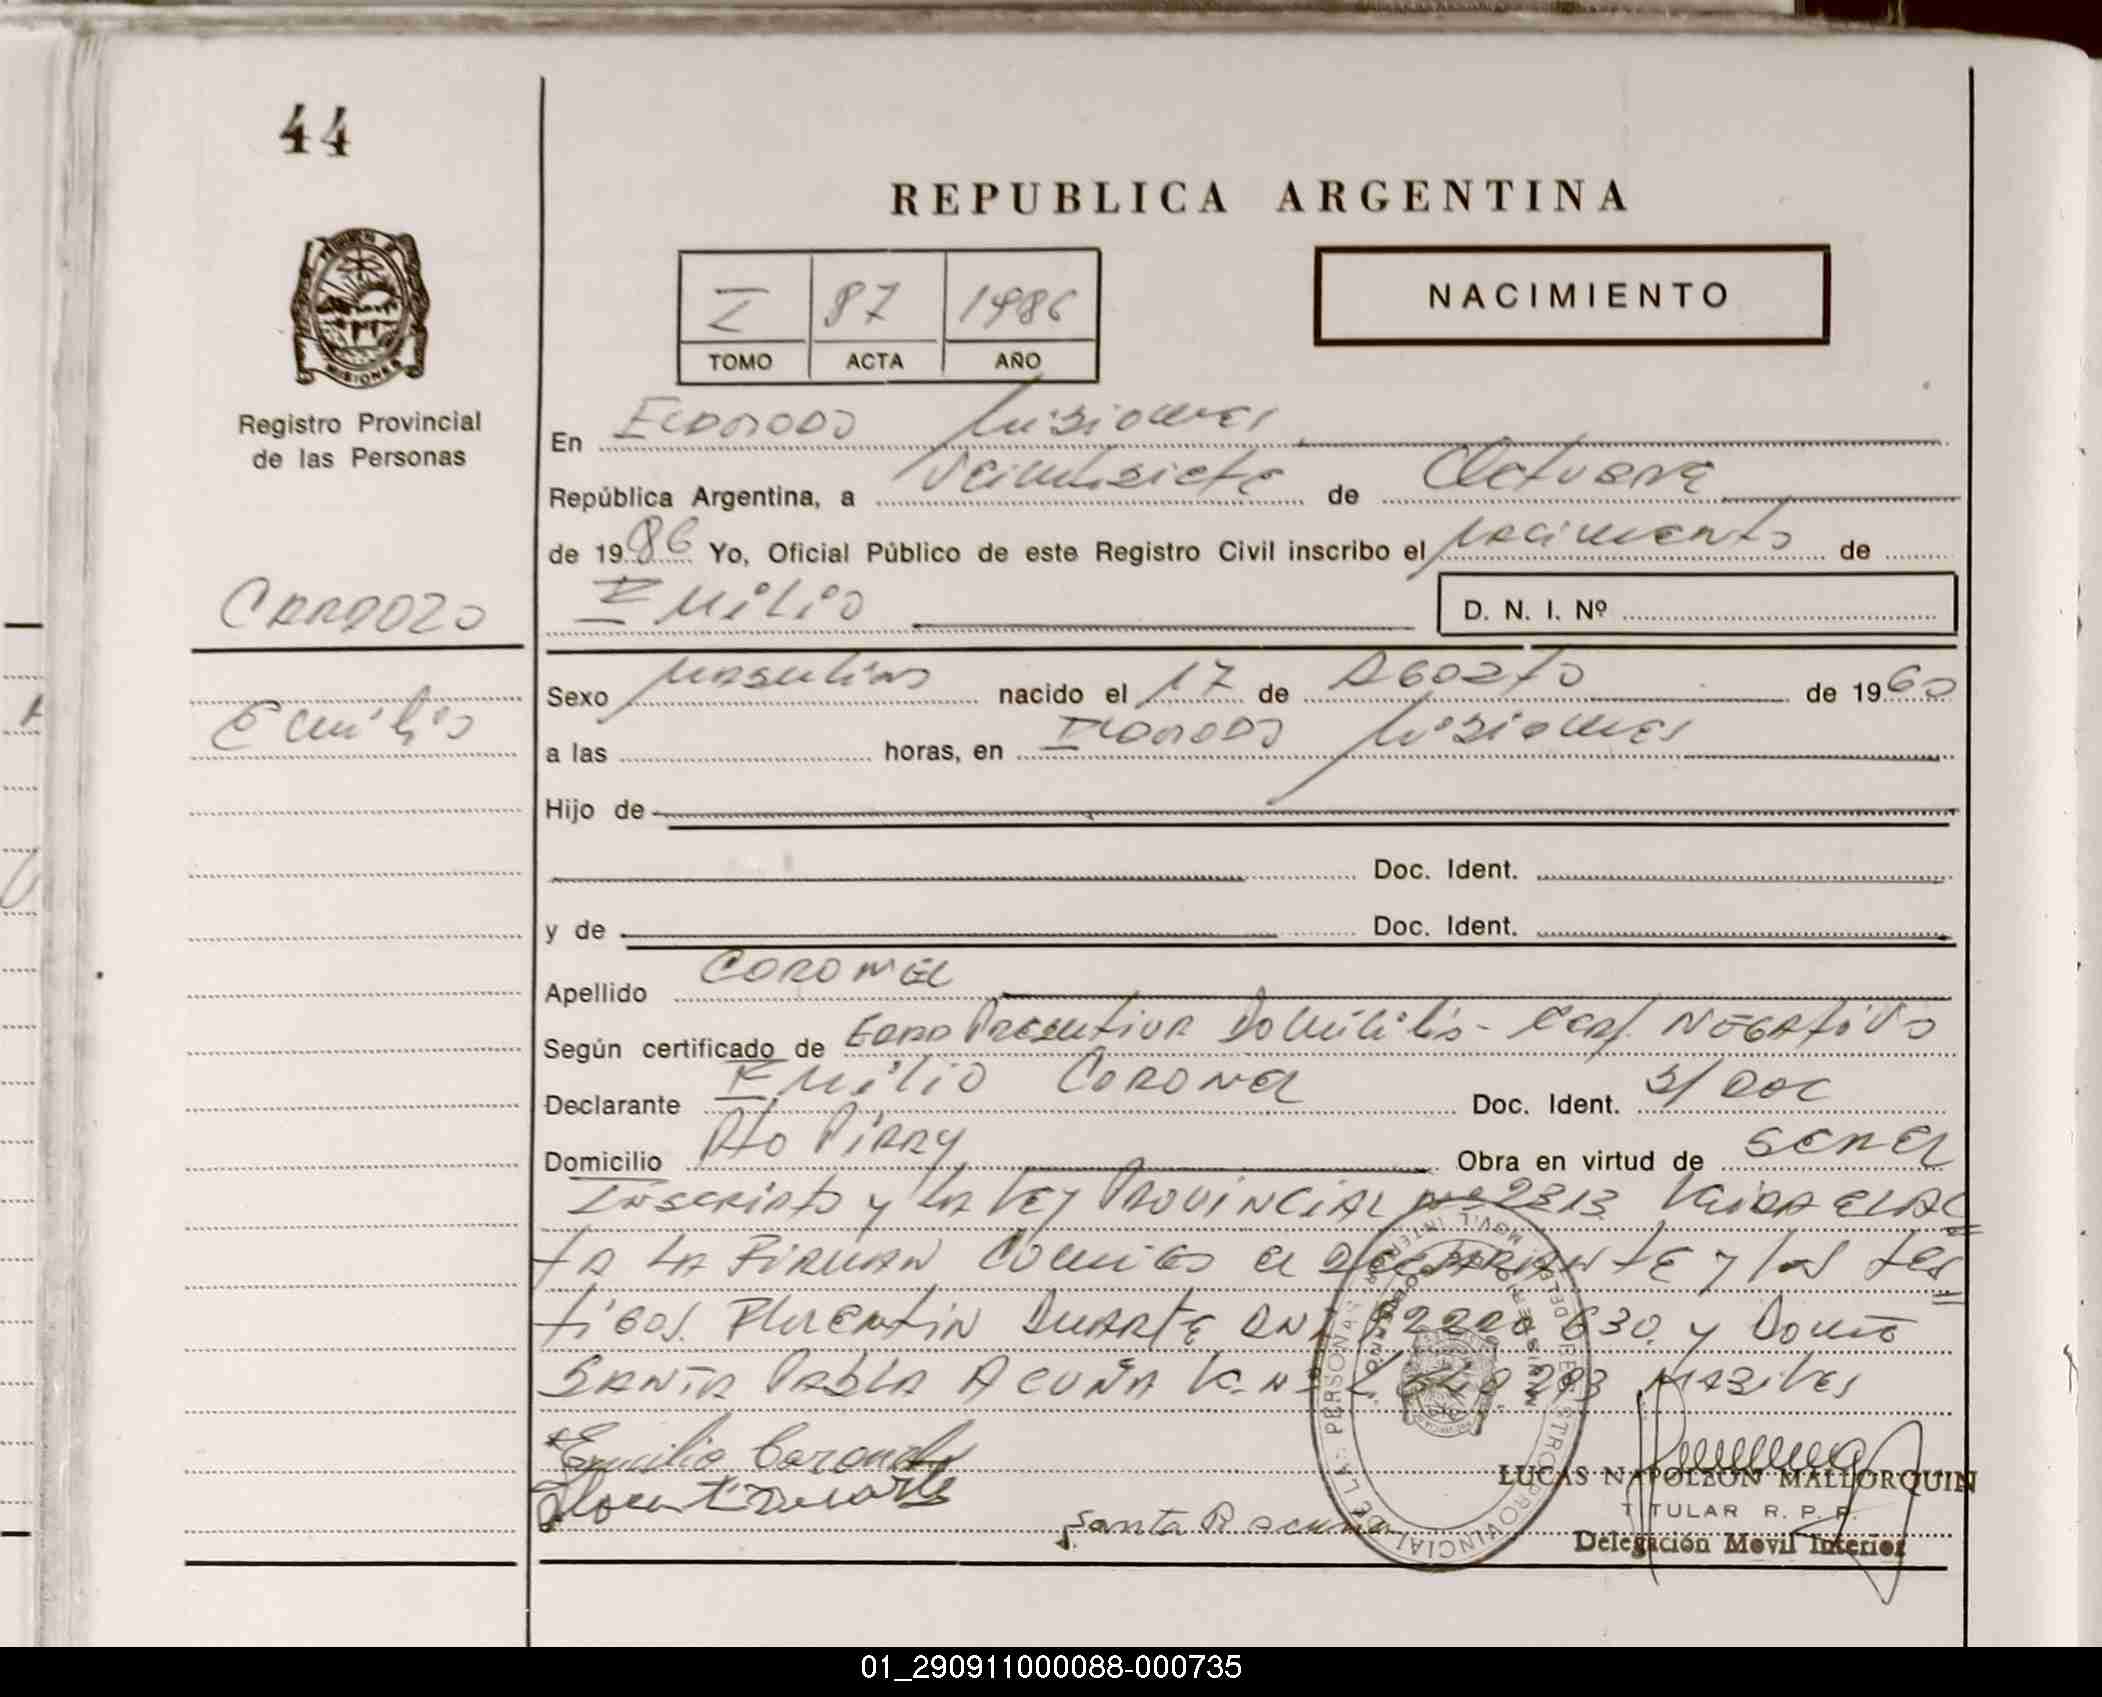 44
REPUBLICA ARGENTINA
I 87 1986
TOMO ACTA AÑO
NACIMIENTO
MISIONES
Registro Provincial
de las Personas
CARDOZO
Emilio
En ELDORADO Misiones
República Argentina, a Veintisiete de Octubre
de 1986 Yo, Oficial Público de este Registro Civil inscribo el nacimiento de
EMILIO
D. N. I. Nº
Sexo Masculino nacido el 17 de AGOSTO de 1960
a las horas, en ELDORADO Misiones
Hijo de
Doc. Ident.
y de Doc. Ident.
Apellido CORONEL
Según certificado de EDAD Presuntiva Domicilio - Cert. NEGATIVO
Declarante EMILIO CORONEL Doc. Ident. S/DOC
Domicilio Pto PIRAY Obra en virtud de SER EL
INSCRIPTO y LA LEY PROVINCIAL Nº 2313 LEIDA EL AC
TA LA FIRMAN CONMIGO el DECLARANTE y los tes
tigos. Florentin DUARTE DNI 630. y Doña
SANTA PABLA ACUÑA 293 HABILES
Emilio Coronel
Florentin Duarte
Santa P Acuña
LUCAS NAPOLEON MALLORQUIN
TITULAR R. P. P.
Delegación Movil Interior
REGISTRO PROVINCIAL DE LAS PERSONAS
01_290911000088-000735